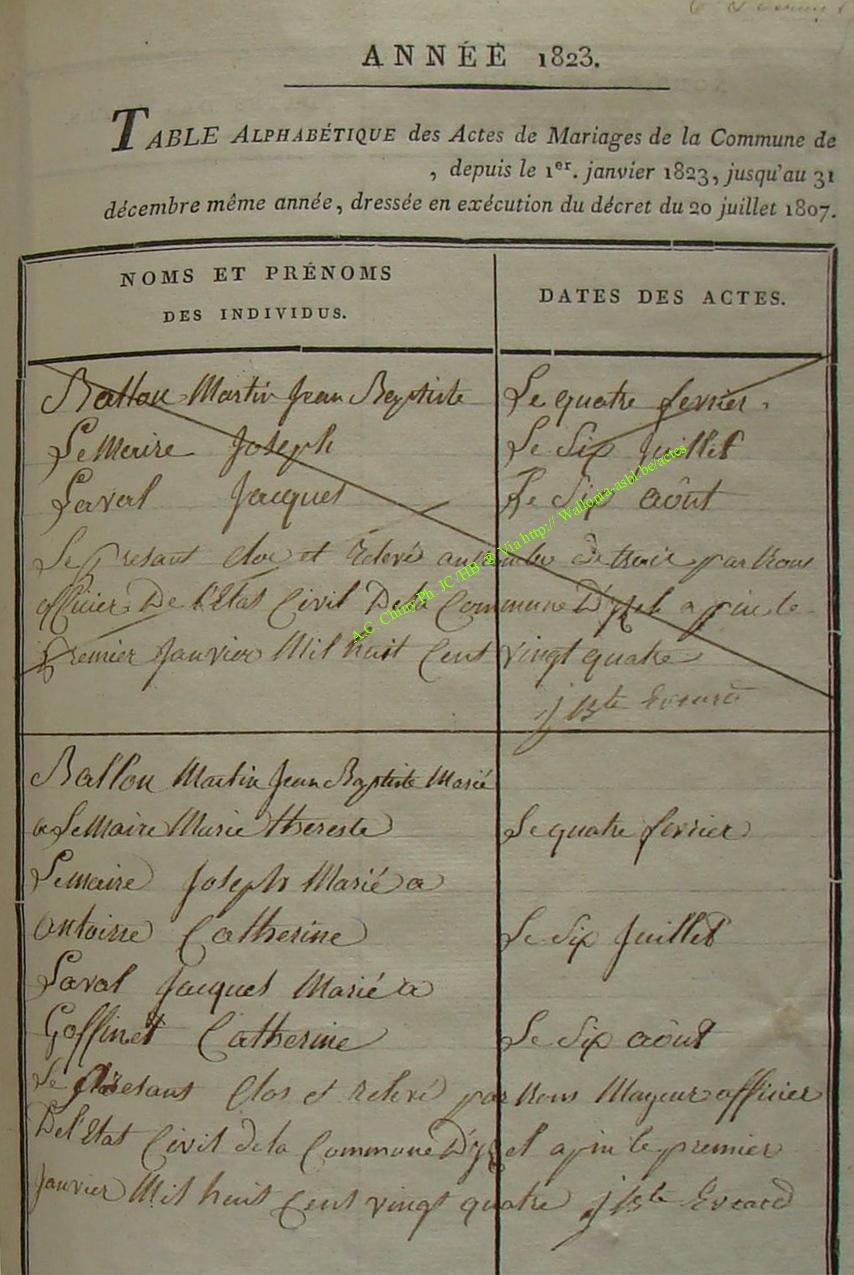 ANNÉE 1823.
TABLE ALPHABÉTIQUE des Actes de Mariages de la Commune de
, depuis le 1er. janvier 1823, jusqu'au 31
décembre même année, dressée en exécution du décret du 20 juillet 1807.
NOMS ET PRÉNOMS
DES INDIVIDUS.
DATES DES ACTES.
Ballou Martin Jean Baptiste Le quatre fevrier.
LeMaire Joseph Le Six Juillet
Laval Jacques Le Six août
Le presant Clos et Relevé au nombre de trois par Nous
officier De l'Etat Civil De la Commune D'yzel a pin le
premier Janvier Mil huit Cent vingt quatre
j Bte Evrard
A.G. Chiny Ph. JC /HB © Via http:// Wallonia-asbl.be/actes
Ballou Martin Jean Baptiste Marié
a LeMaire Marie thereste Le quatre fevrier
Lemaire Joseph Marié a
Antoine Catherine Le Six Juillet
Laval Jacques Marié a
Goffinet Catherine Le Six août
Le presant Clos et relevé par Nous Mayeur officier
De l'Etat Civil de la Commune D'yzel a pin le premier
Janvier Mil huit Cent vingt quatre j Bte Evrard